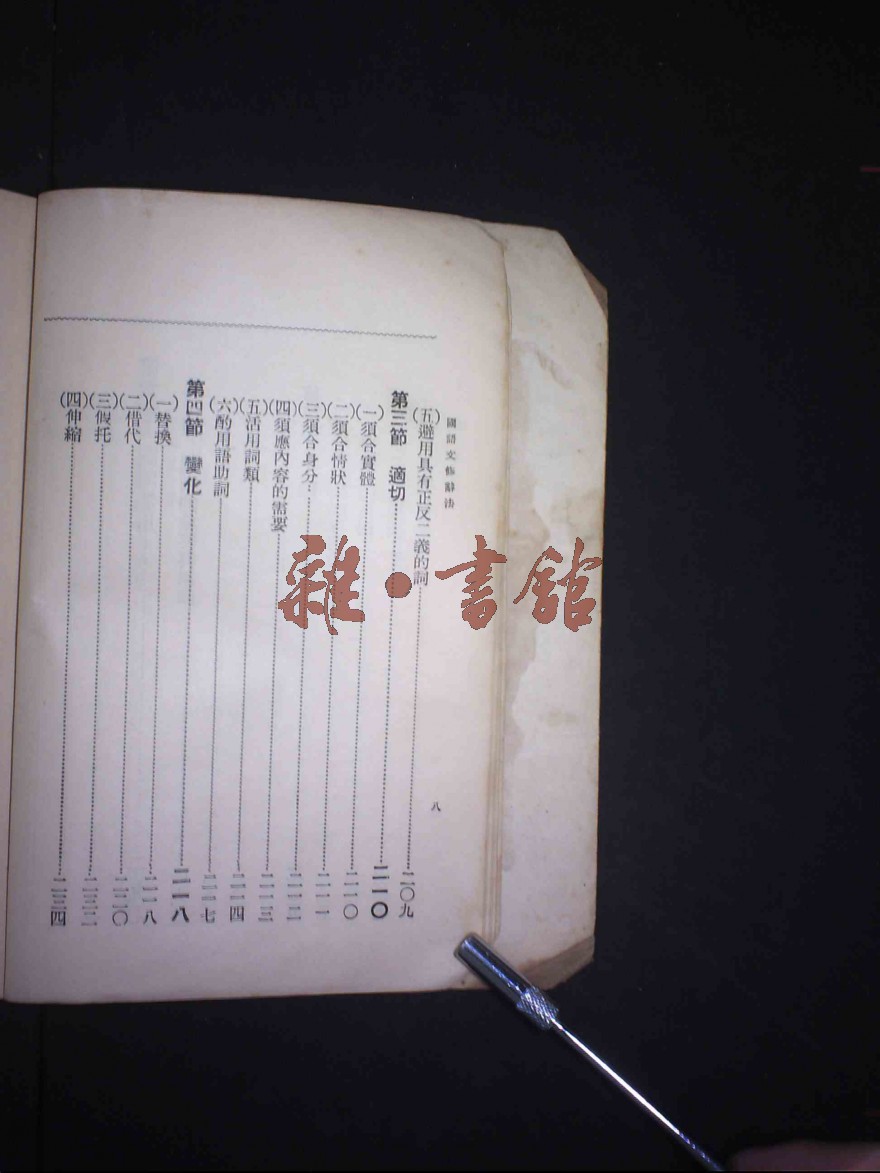 國語文修辭法
八
(五)避用具有正反二義的詞……二〇九
第三節 適切……二一〇
(一)須合實體……二一〇
(二)須合情狀……二一一
(三)須合身分……二一二
(四)須應內容的需要……二一三
(五)活用詞類……二一四
(六)酌用語助詞……二一七
第四節 變化……二一八
(一)替換……二一八
(二)借代……二二〇
(三)假托……二三二
(四)伸縮……二三四
雜·書館